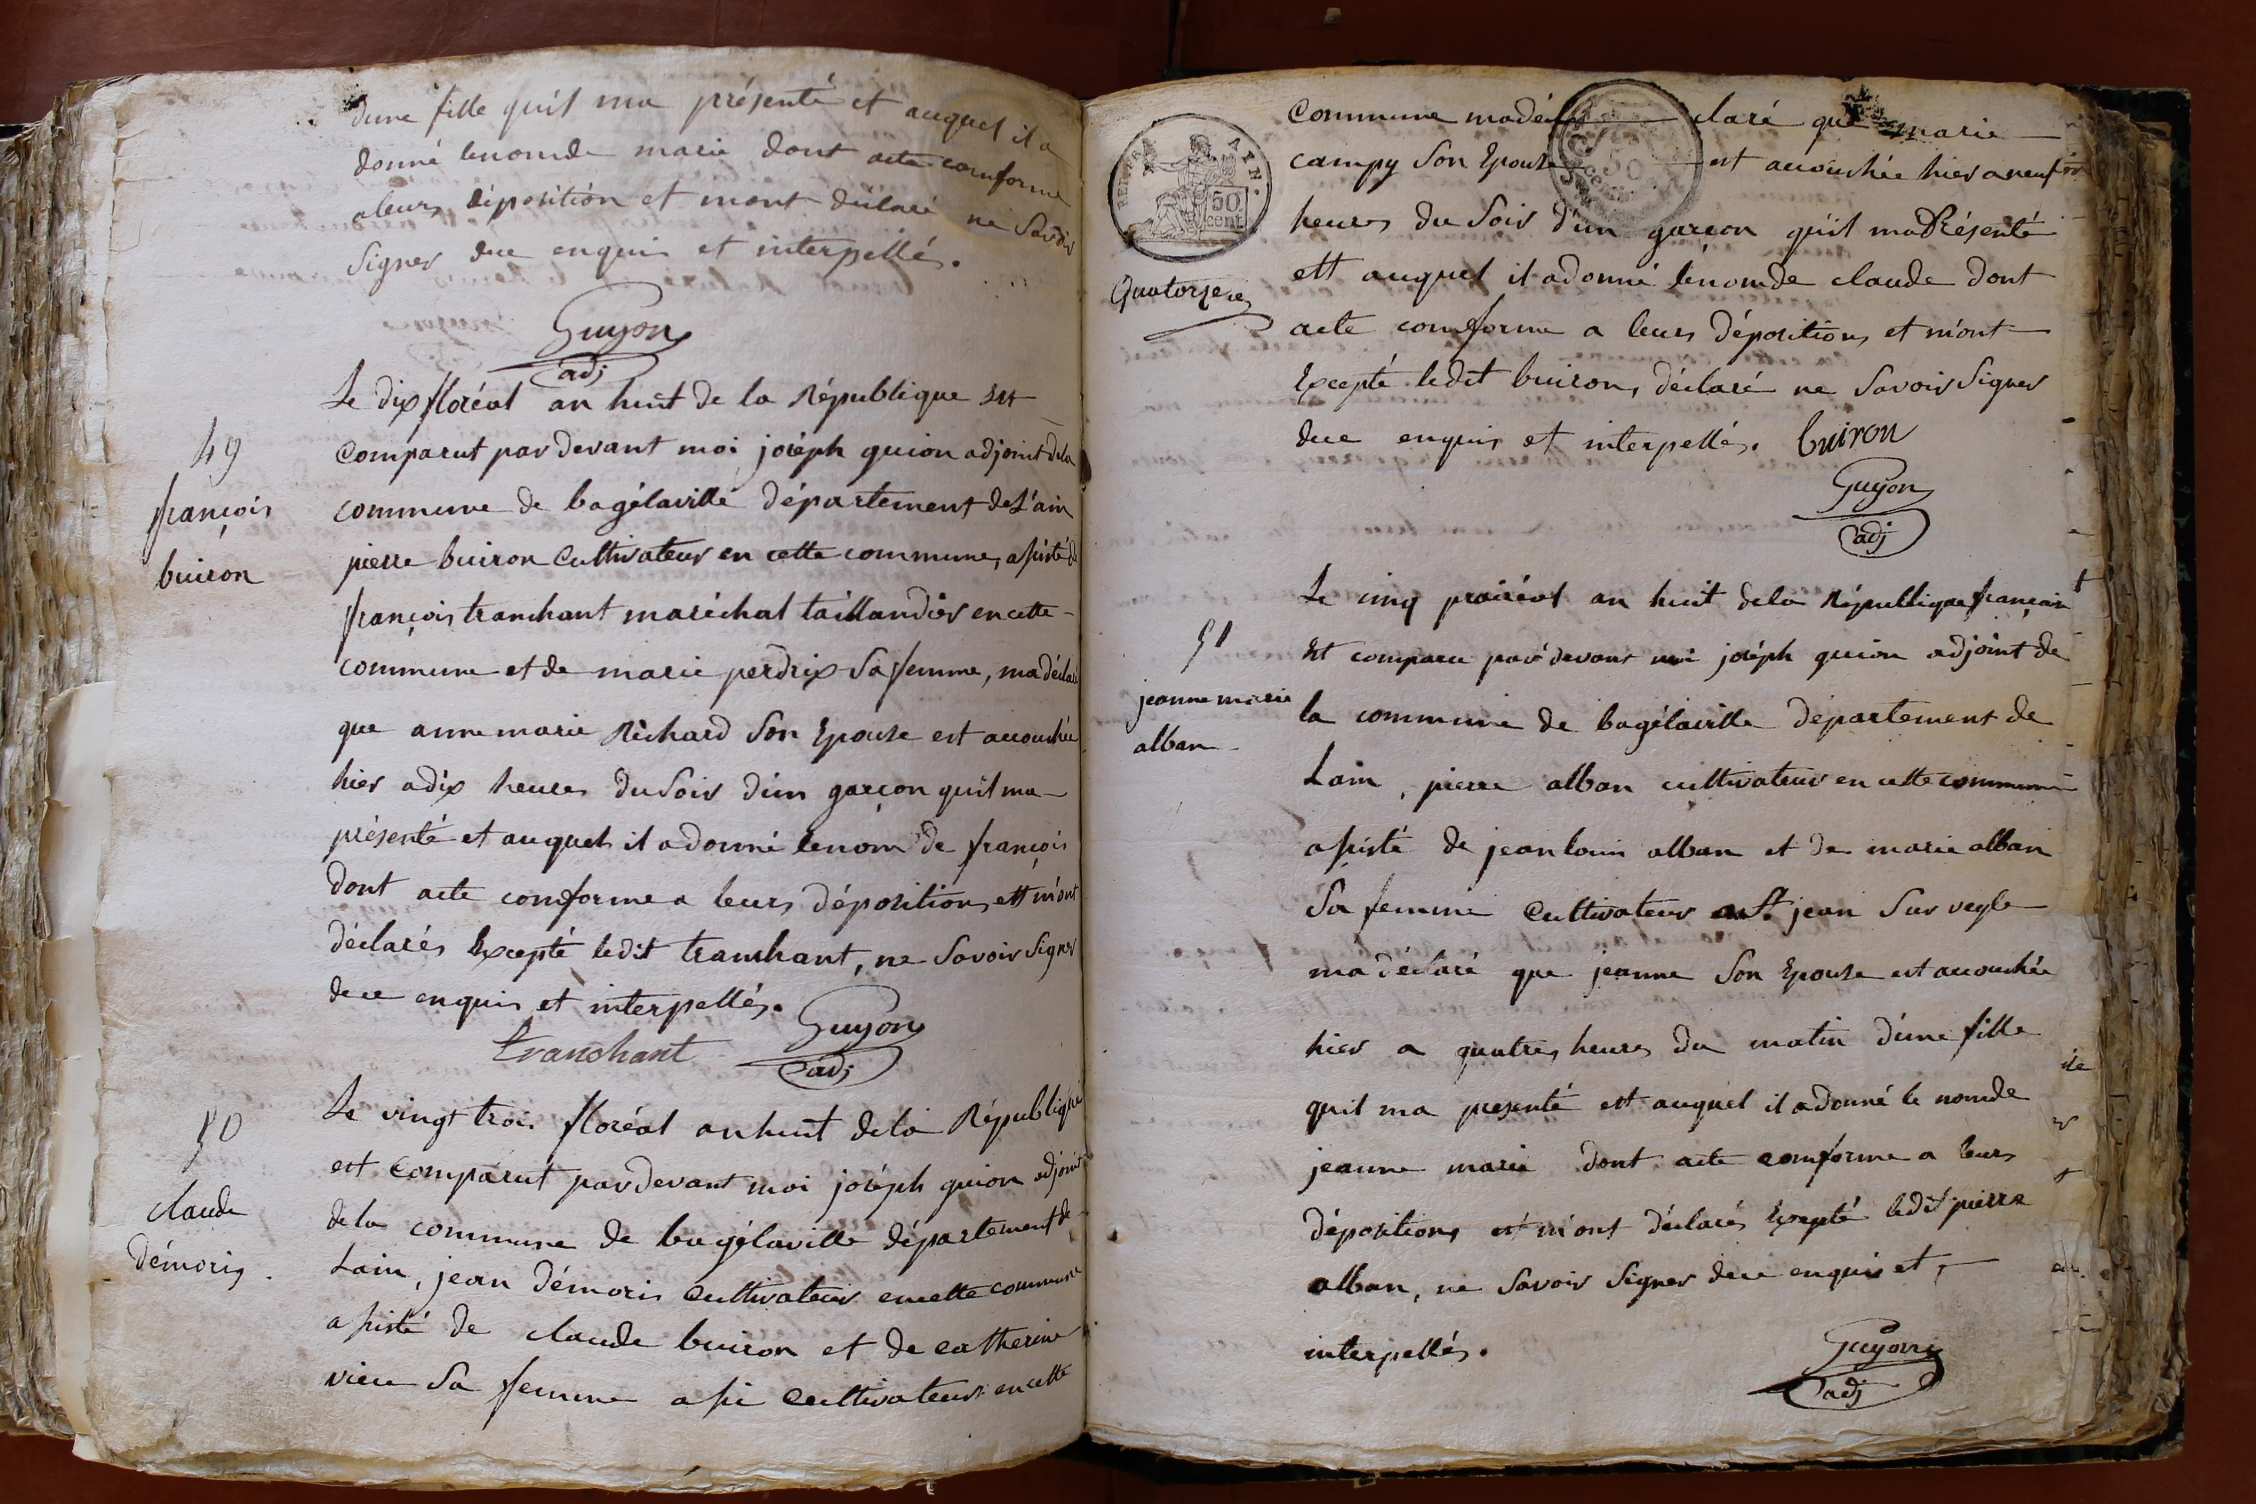 dune fille quil ma présenté et auquel il a
donné lenomde marie dont acte comforme
aleurs déposition et mont déclaré ne Savoir
Signer dece enquis et interpellés.
Guyon
adj
Le dix floréal an huit de la République Est
49
françois
buiron
Comparut pardevant moi joséph guion adjoint dela
commune de bagélaville département deL'ain
pierre buiron Cultivateur en cette commune, asisté de
françois tranchant maréchal taillandier encette
commune et de marie perdrix Sa femme, ma déclaré
que anne marie Richard Son Epouse est accouchée
hier adix heures du Soir d'un garçon quil ma
présenté et auquel il adonné lenom de françois
dont acte comforme a leurs dépositions ett m'ont
déclarés Excepté ledit tranchant, ne Savoir Signer
dece enquis et interpellés.
tranchant
Guyon
adj
50
claude
démoris
Le vingt trois floréal anhuit dela République
est Comparut pardevant moi joséph guion adjoint
dela commune de bagélaville département de
Lain, jean démoris Cultivateur encette commune
asisté de claude buiron et de catherine
Sa femme asi Cultivateurs encette
REP. FRA.
50
cent
Quatorze
50
Commune madé claré que marie
campy Son Epouse est accouchée hier aneuf
heures du Soir d'un garçon quil ma Présenté
ett auquel il adonné lenomde claude dont
acte comforme a leurs dépositions et m'ont
Excepté ledit buiron, déclaré ne Savoir Signer
dece enquis et interpellés. buiron
Guyon
adj
51
jeanne marie
alban
Le cinq prairéal an huit dela République française
Est comparu pardevant moi joséph guion adjoint de
la commune de bagélaville département de
Lain, pierre alban cultivateur en cette commune
asisté de jean louis alban et de marie alban
Sa femme Cultivateur a St. jean Sur veyle
ma déclaré que jeanne Son Epouse est accouchée
hier a quatres heures du matin d'une fille
quil ma presenté et auquel il adonné le nomde
jeanne marie dont acte comforme a leurs
dépositions et m'ont déclarés Excepté ledit pierre
alban, ne Savoir Signer dece enquis et
interpellés.
Guyon
adj